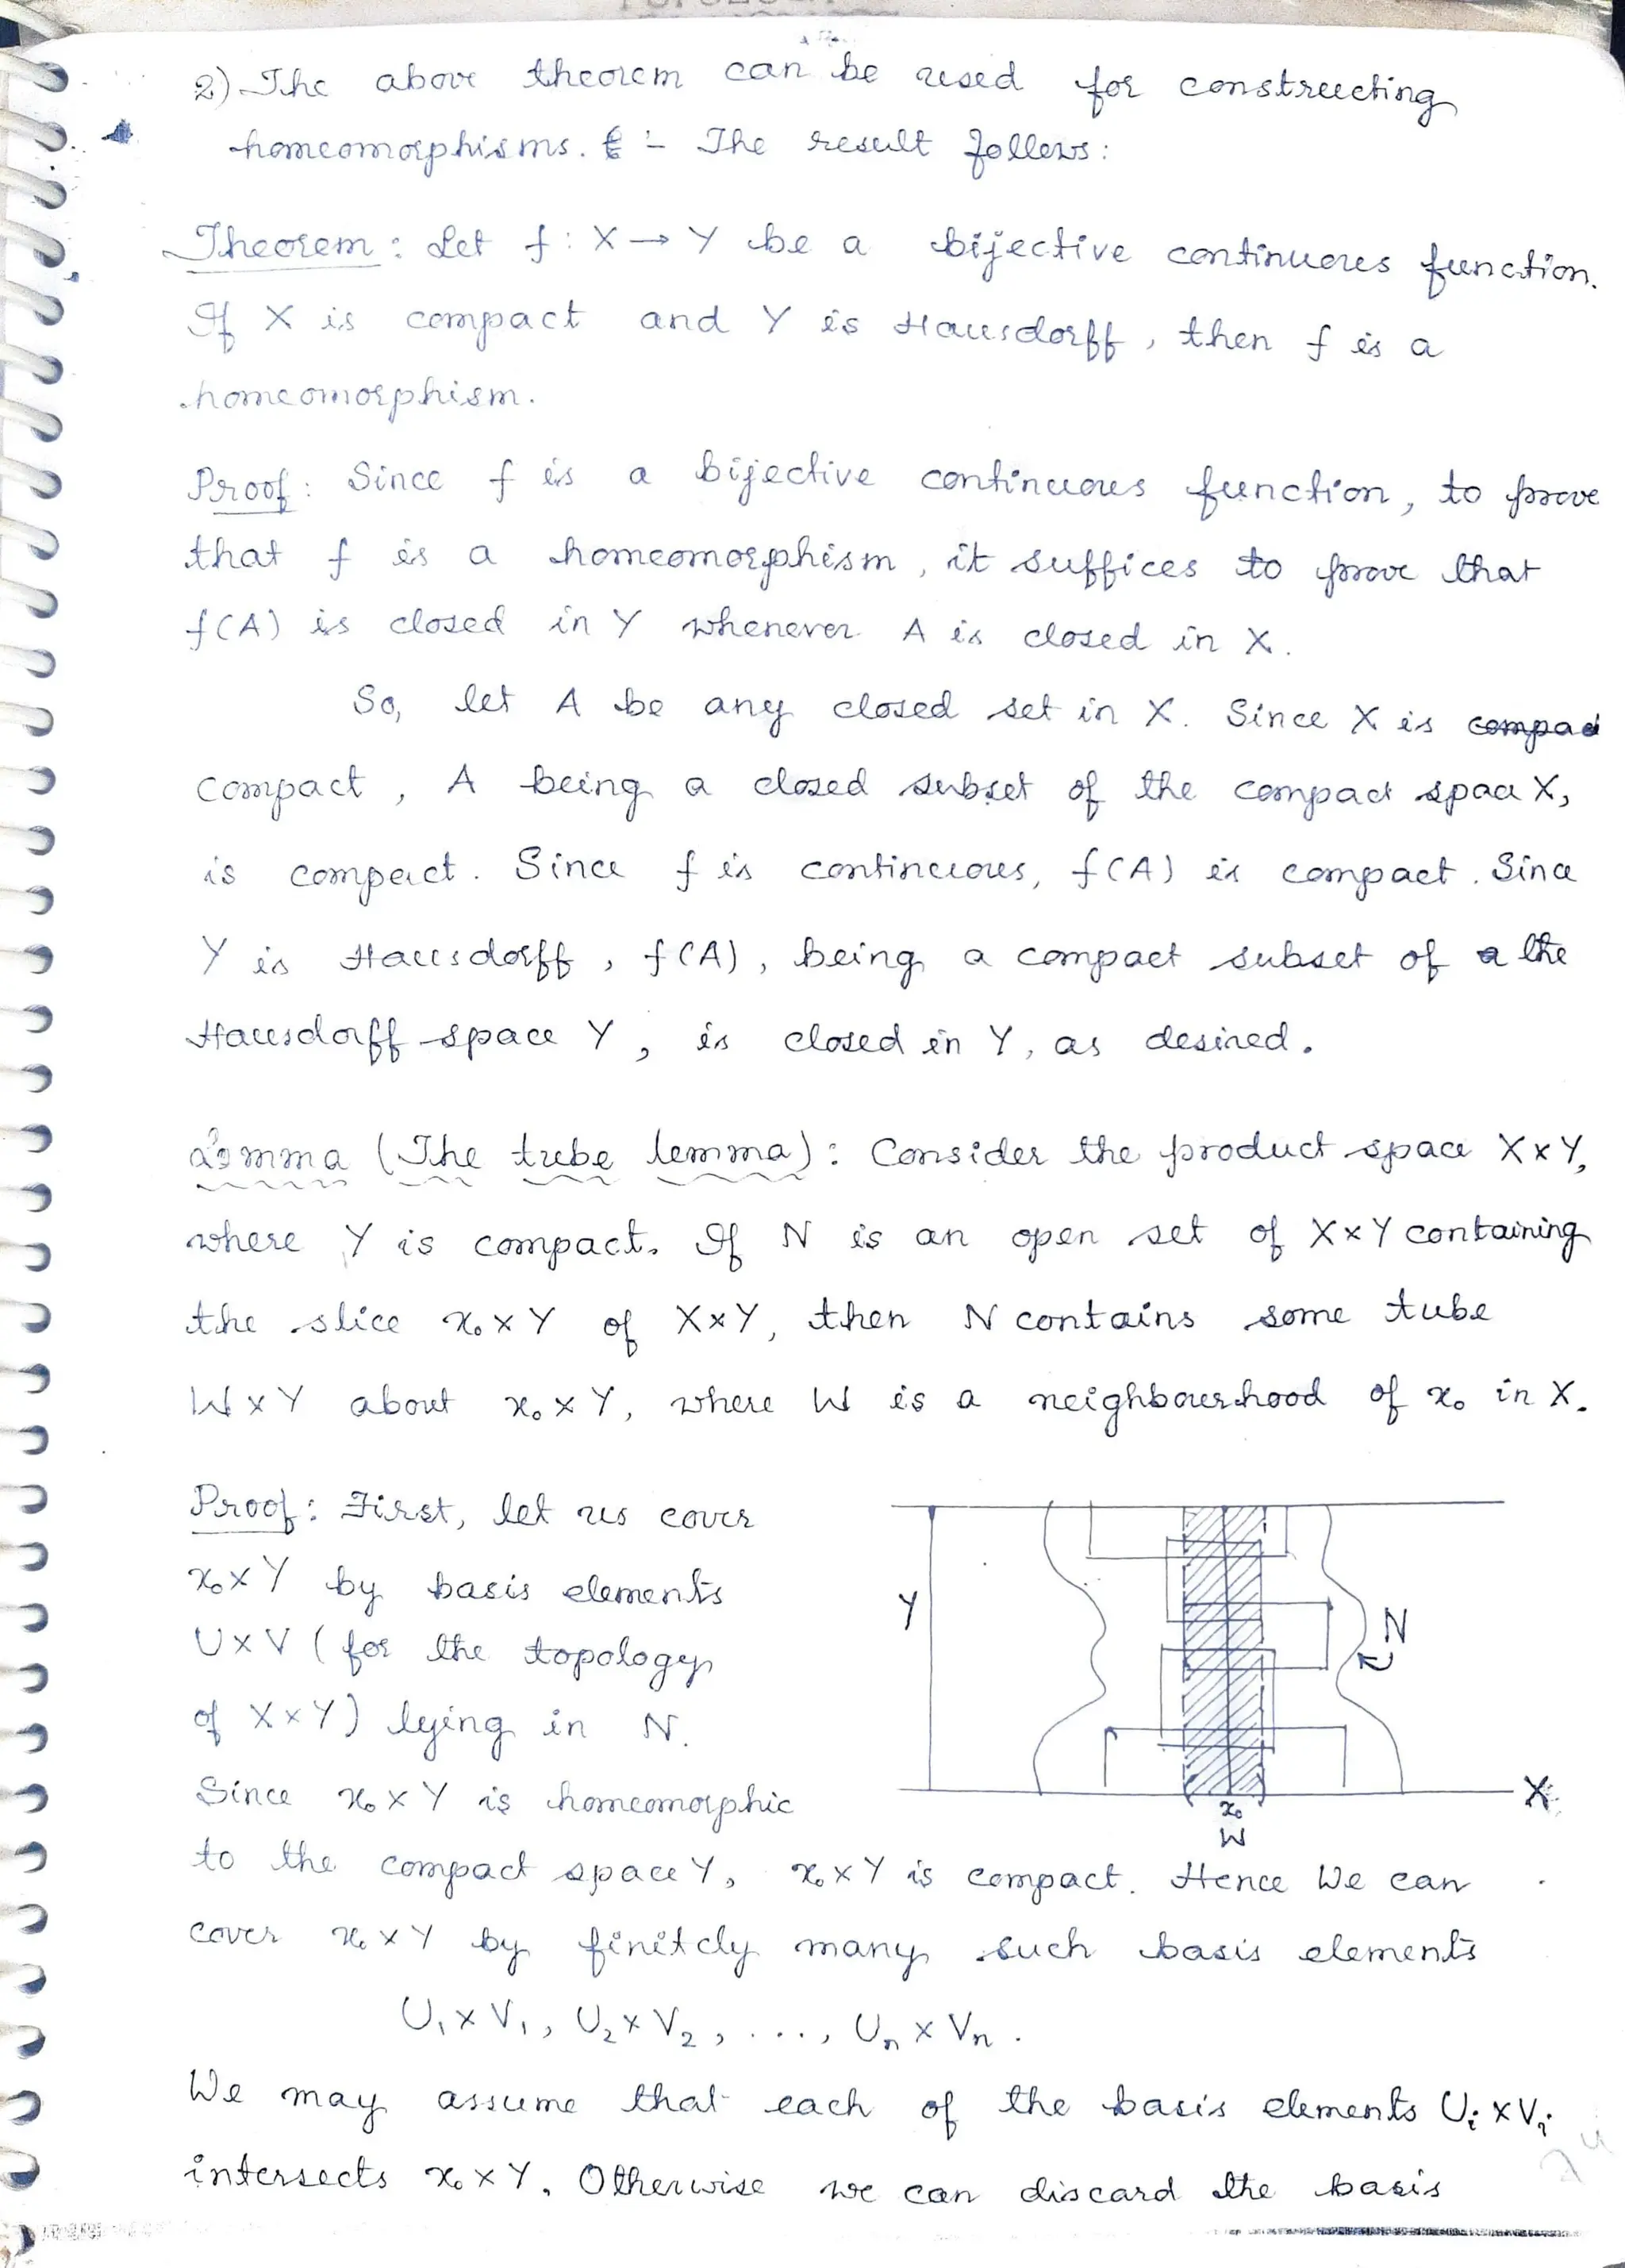 2) The above theorem can be used for constructing
homeomorphisms. :- The result follows:
Theorem: Let f : X → Y be a bijective continuous function.
If X is compact and Y is Hausdorff, then f is a
homeomorphism.
Proof: Since f is a bijective continuous function, to prove
that f is a homeomorphism, it suffices to prove that
f(A) is closed in Y whenever A is closed in X.
So, let A be any closed set in X. Since X is compac
compact, A being a closed subset of the compact space X,
is compact. Since f is continuous, f(A) is compact. Since
Y is Hausdorff, f(A), being a compact subset of a the
Hausdorff space Y, is closed in Y, as desired.
Lemma (The tube lemma): Consider the product space X×Y,
where Y is compact. If N is an open set of X×Y containing
the slice x₀ × Y of X×Y, then N contains some tube
W × Y about x₀ × Y, where W is a neighbourhood of x₀ in X.
Proof: First, let us cover
x₀ × Y by basis elements
U × V (for the topology
of X×Y) lying in N.
Since x₀ × Y is homeomorphic
Y
N
X
x₀
W
to the compact space Y, x₀ × Y is compact. Hence We can
cover x₀ × Y by finitely many such basis elements
U₁ × V₁, U₂ × V₂, ..., Uₙ × Vₙ.
We may assume that each of the basis elements Uᵢ × Vᵢ
intersects x₀ × Y. Otherwise we can discard the basis